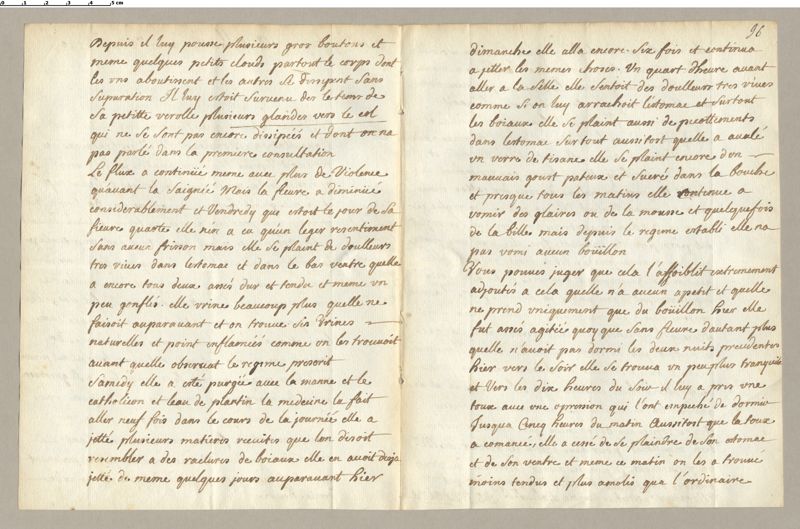 0 1 2 3 4 5 cm
Depuis il luy pousse plusieurs gros boutons et
meme quelques petits clouds partout le corps dont
les uns aboutissent et les autres se dissipent sans
supuration Il luy estoit survenu des le tems de
sa petitte verolle plusieurs glandes vers le col
qui ne se sont pas encore dissipées et dont on na
pas parlé dans la premiere consultation
Le flux a continüé meme avec plus de Violence
quavant la saignée Mais la fievre a diminüé
considerablement et Vendredy qui estoit le jour de sa
fievre quarte elle nen a eu qu'un leger resentiment
sans aucun frisson mais elle se plaint de doulleurs
tres vives dans lestomac et dans le bas ventre quelle
a encore tous deux assés dur et tendu et meme un
peu gonflés. elle urine beaucoup plus quelle ne
faisoit auparavant et on trouve ses Vrines
naturelles et point inflamées comme on les trouvoit
avant quelle observat le regime prescrit
Samedy elle a eté purgée avec la manne et le
catholicon et leau de plantin la medecine la fait
aller neuf fois dans le cours de la journée elle a
jetté plusieurs matieres recuites que lon disoit
resembler a des raclures de boiaux elle en avoit deja
jetté de meme quelques jours auparavant hier
96
dimanche elle alla encore six fois et continua
a jetter les memes choses. Un quart dheure avant
aller a la selle elle sentoit des doulleurs tres vives
comme si on luy arrachoit lestomac et surtout
les boiaux elle se plaint aussi de picottements
dans lestomac surtout aussitost quelle a avalé
un verre de tisane elle se plaint encore dun
mauvais goust pateux et sucré dans la bouche
et presque tous les matins elle continue a
vomir des glaires ou de la mousse et quelquefois
de la bille mais depuis le regime establi elle na
pas vomi aucun boüillon
Vous pouvés juger que cela l'affoiblit extremement
adjoutés a cela quelle n'a aucun apetit et quelle
ne prend uniquement que du boüillon hier elle
fut assés agitée quoyque sans fievre dautant plus
quelle n'avoit pas dormi les deux nuits precedentes
hier vers le soir elle se trouva un peu plus tranquille
et Vers les dix heures du soir il luy a pris une
toux avec une opression qui l'ont empeché de dormir
Jusqua Cinq heures du matin Aussitost que la toux
a comancé, elle a cessé de se plaindre de son estomac
et de son ventre et meme ce matin on les a trouvé
moins tendus et plus amolis qua l'ordinaire